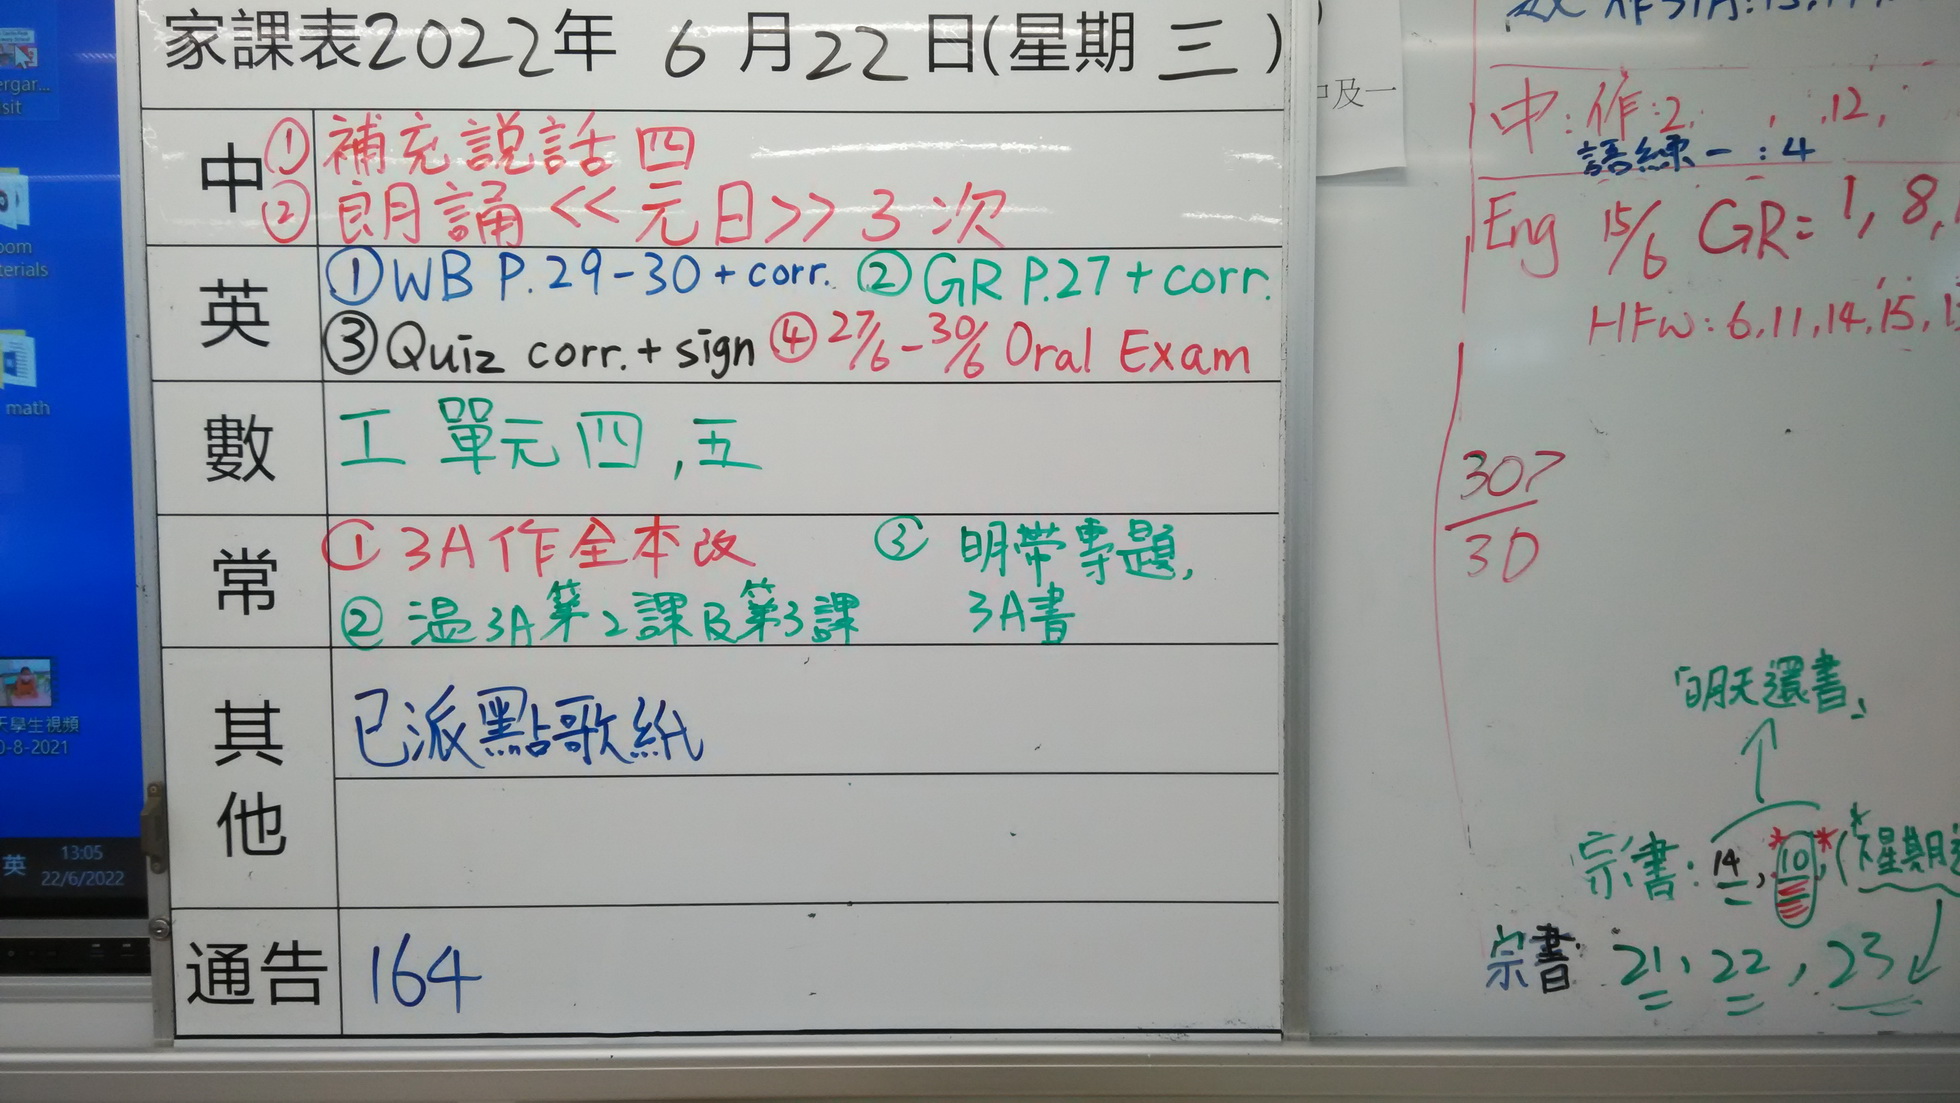 家課表2022年 6月22日(星期三)
中
① 補充說話四
② 朗誦<<元日>> 3次
英
① WB P.29-30 + corr. ② GR P.27 + corr.
③ Quiz corr. + sign ④ 27/6-30/6 Oral Exam
數
工 單元四,五
常
① 3A作全本改
② 溫3A第2課及第3課
③ 明帶專題,
3A書
其他
已派點歌紙
通告
164
中及一
中:作:2, , ,12,
語練一:4
Eng 15/6 GR= 1, 8,
HFW: 6,11,14,15,
307
30
「明天還書」
宗書: 14, *10*, (*下星期
宗書: 21, 22, 23
ergar...
sit
oom
terials
math
天學生視頻
0-8-2021
英
13:05
22/6/2022